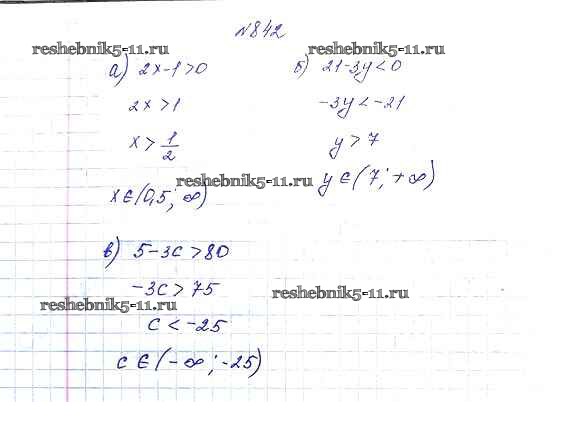 №842
reshebnik5-11.ru reshebnik5-11.ru
а) 2x-1>0
2x>1
x>1/2
x∈(0,5; ∞)
б) 21-3y<0
-3y<-21
y>7
y∈(7; +∞)
reshebnik5-11.ru
в) 5-3c>80
-3c>75
c<-25
c∈(-∞; -25)
reshebnik5-11.ru reshebnik5-11.ru